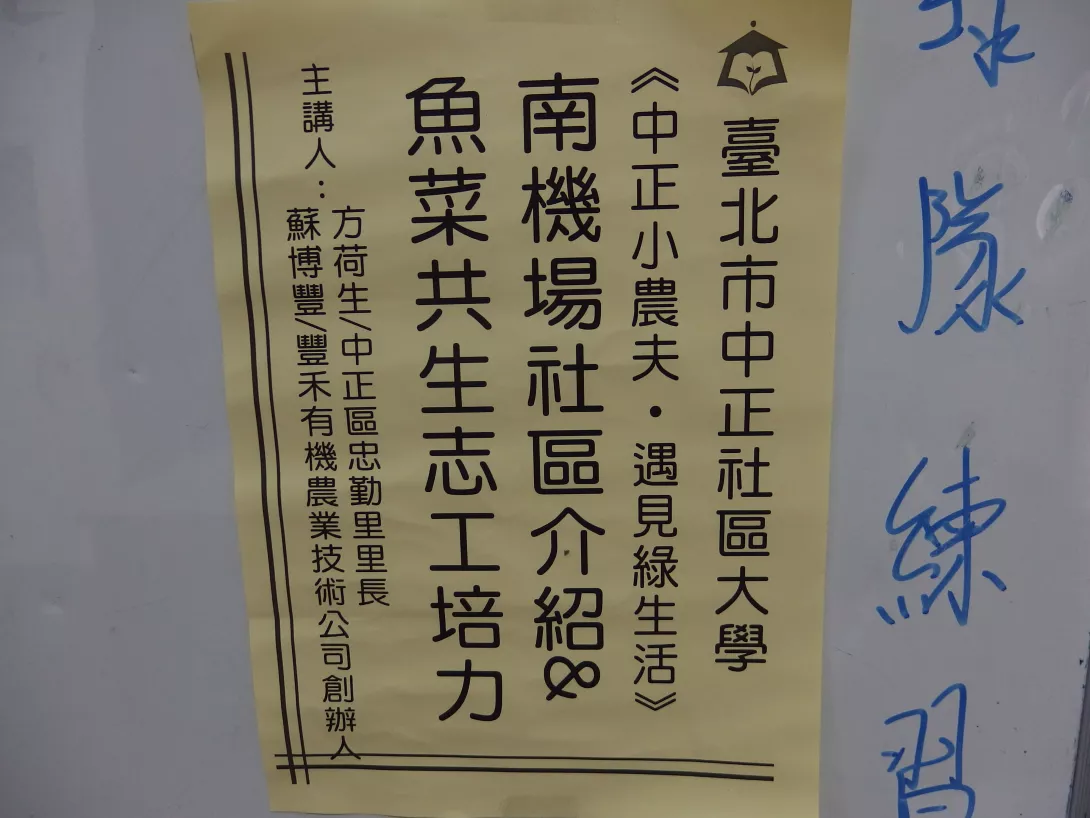 隊練習
臺北市中正社區大學
《中正小農夫・遇見綠生活》
南機場社區介紹&
魚菜共生志工培力
主講人：
方荷生/中正區忠勤里里長
蘇博豐/豐禾有機農業技術公司創辦人